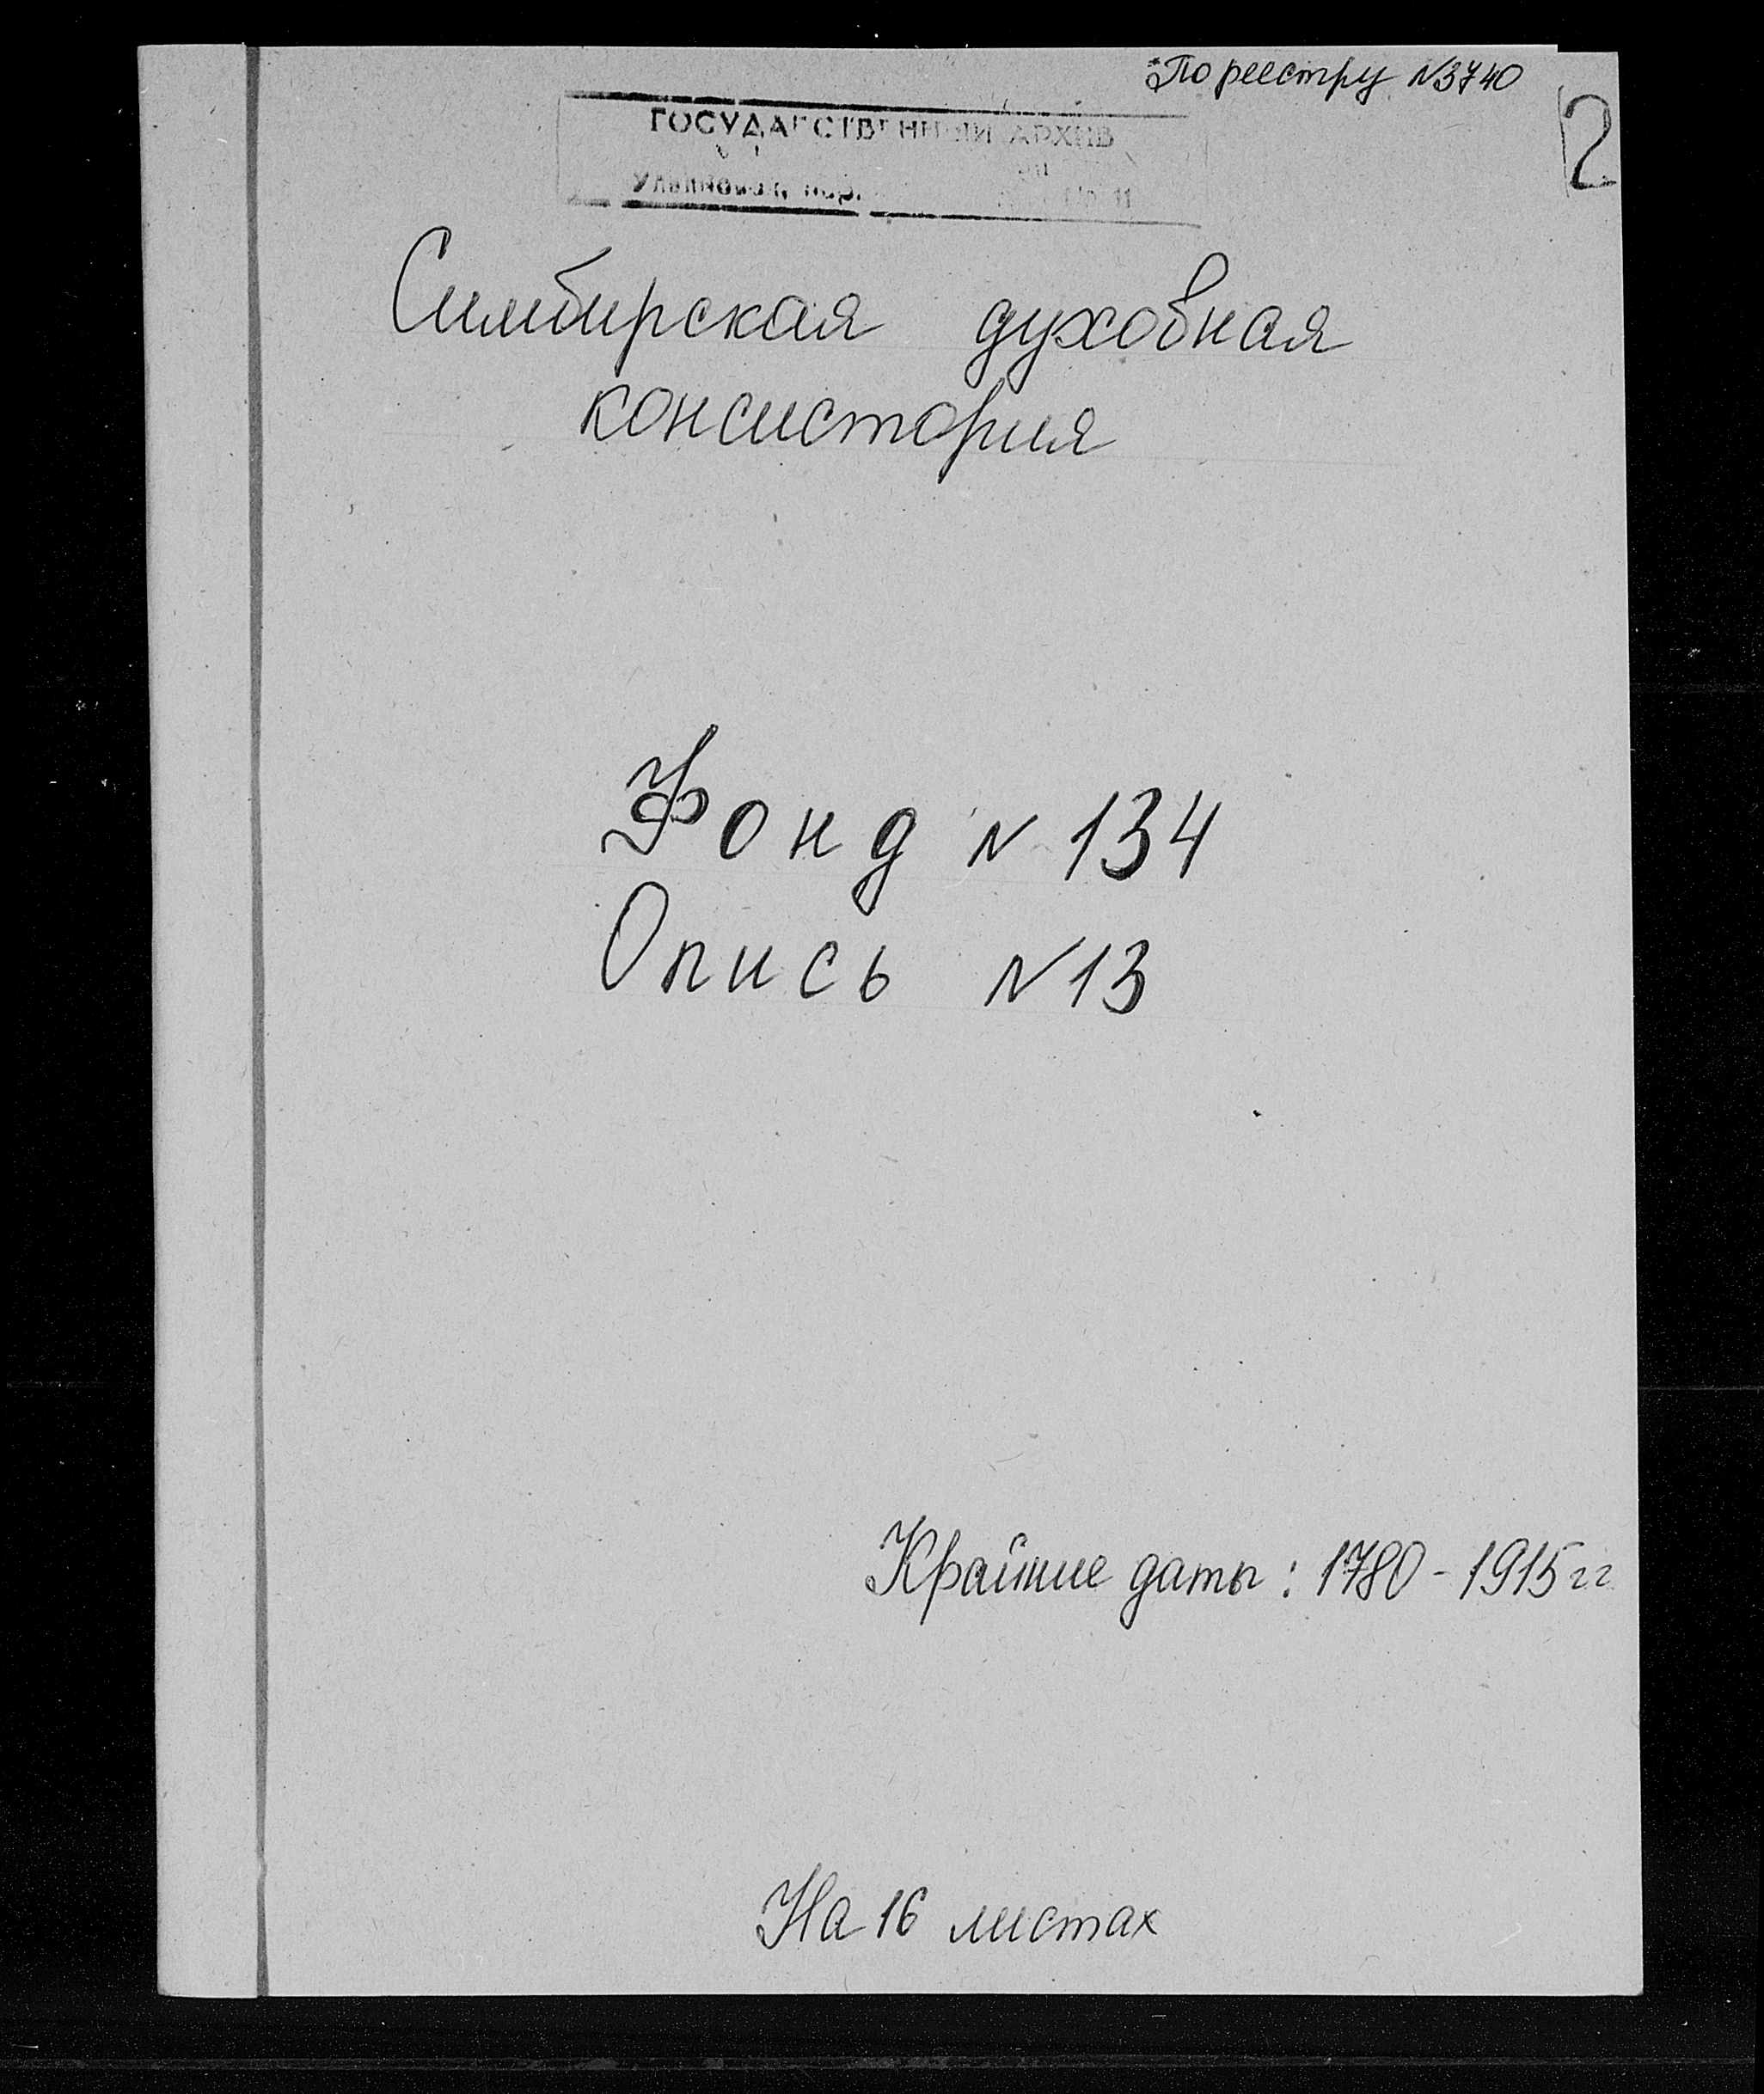 По реестру №3740
2
ГОСУДАРСТВЕННЫЙ АРХИВ
Симбирская духовная
консистория
Фонд № 134
Опись №13
Крайние даты: 1780-1915 гг
На 16 листах